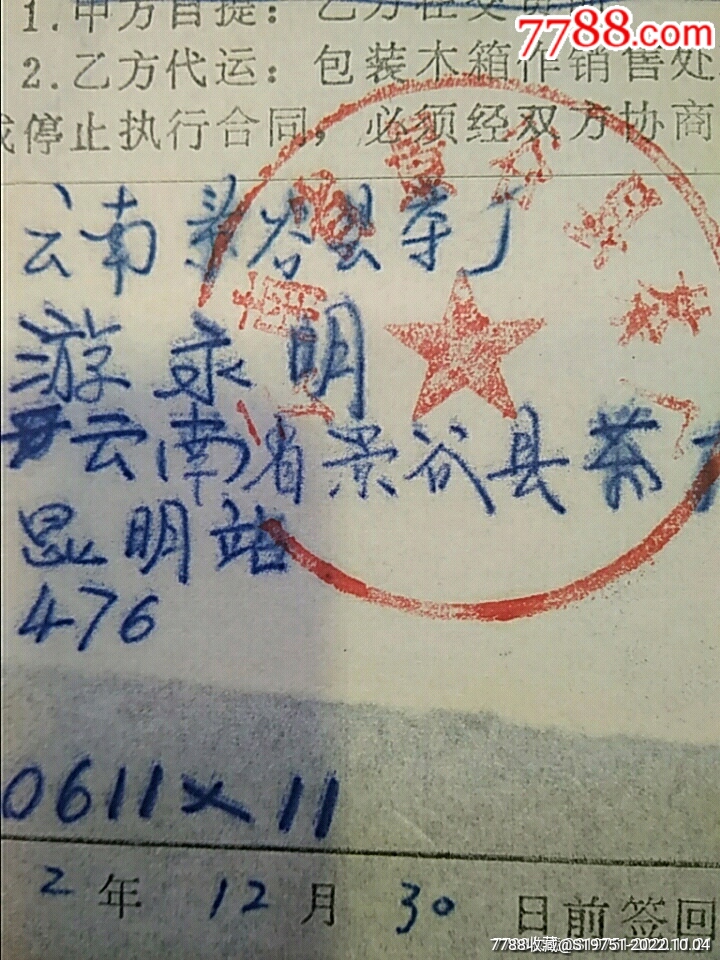 7788.com
1.甲方自提：乙方在交货
2.乙方代运：包装木箱作销售处
或停止执行合同，必须经双方协商
云南景谷县茶厂
游永明
云南省景谷县茶厂
昆明站
476
0611×11
2年12月30日前签回
7788收藏@S19751-2022.10.04